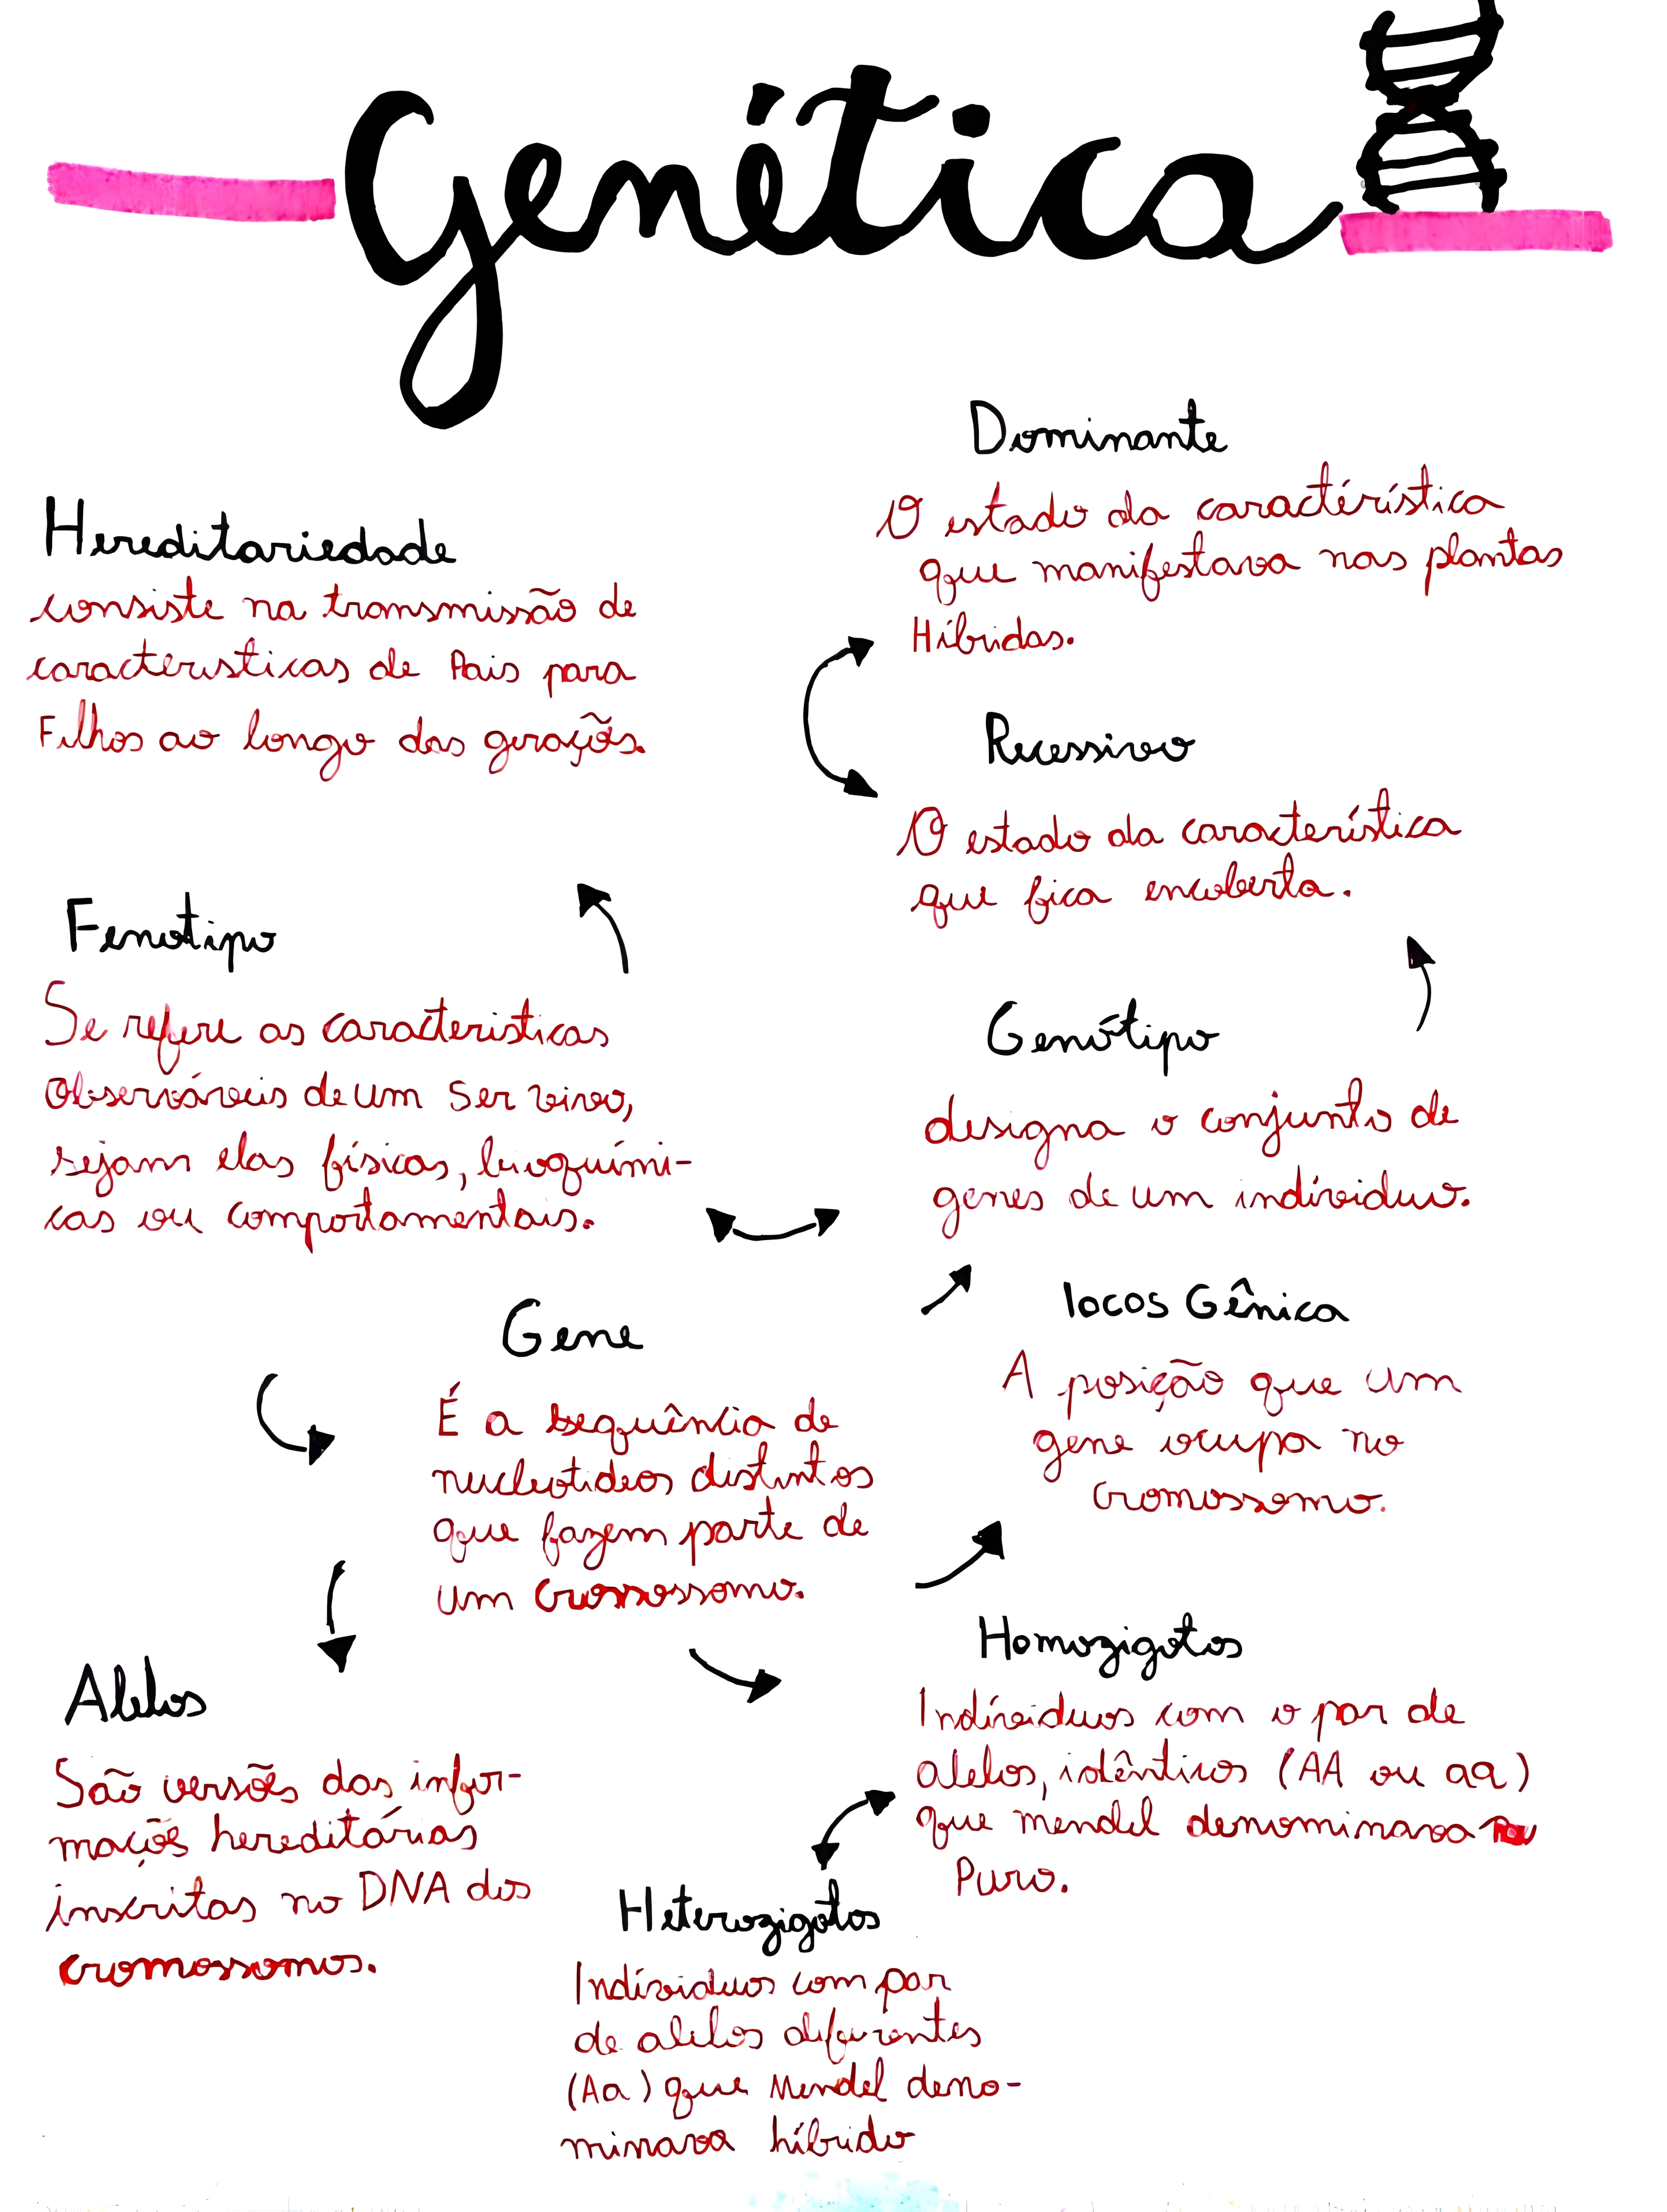 Genética
Hereditariedade
consiste na transmissão de
caracteristicas de Pais para
Filhos ao longo das gerações.
Dominante
O estado da caractérística
que manifestava nas plantas
Híbridas.
Recessivo
O estado da característica
que fica encoberta.
Fenotipo
Se refere as caracteristicas
Observáveis de um Ser vivo,
sejam elas físicas, bioquími-
cas ou comportamentais.
Genótipo
designa o conjunto de
genes de um indivíduo.
Gene
É a sequência de
nucleotideos distintos
que fazem parte de
um Cromossomo.
locos Gênica
A posição que um
gene ocupa no
Cromossomo.
Alelos
São versões das infor-
mações hereditárias
inscritas no DNA dos
cromossomos.
Homozigotos
Indívíduos com o par de
alelos, idênticos (AA ou aa)
que mendel denominava
Puro.
Heterozigotos
Indivíduos com par
de alelos diferentes
(Aa) que Mendel deno-
minava híbrido